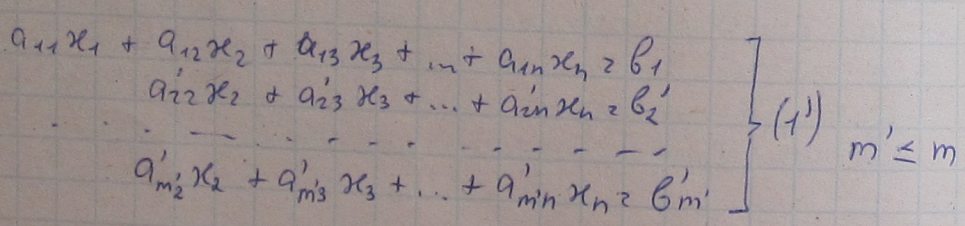 a₁₁x₁ + a₁₂x₂ + a₁₃x₃ + ... + a₁ₙxₙ = b₁
a'₂₂x₂ + a'₂₃x₃ + ... + a'₂ₙxₙ = b'₂
. . . . . . . . . . . . . . } (1') m' ≤ m
a'ₘ'₂x₂ + a'ₘ'₃x₃ + ... + a'ₘ'ₙxₙ = b'ₘ'